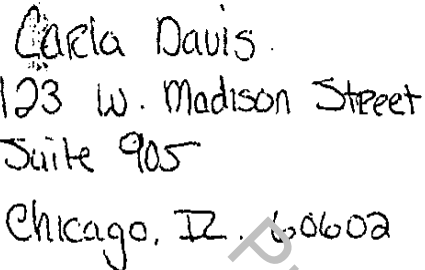 Carla Davis.
123 W. Madison Street
Suite 905
Chicago, IL. 60602